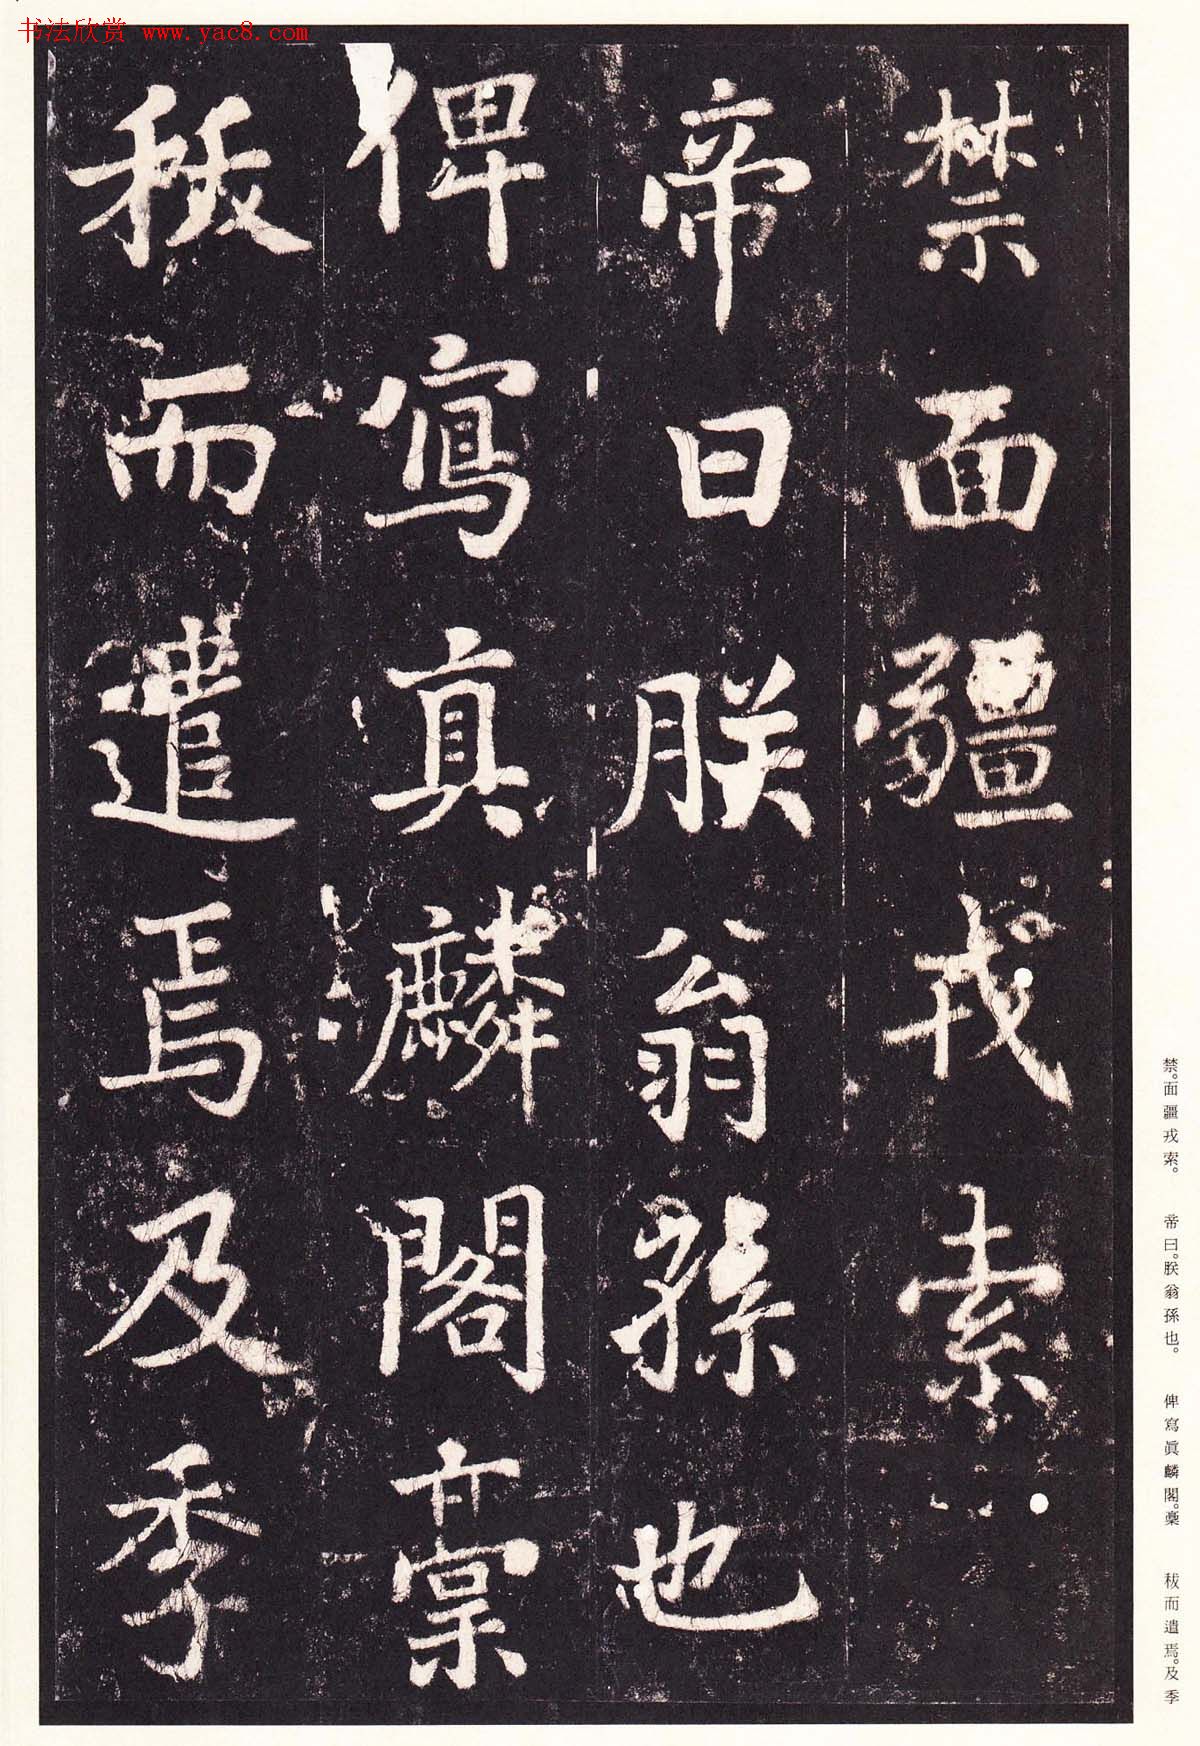 书法欣赏 www.yac8.com
禁面疆戎索
帝曰朕翁孫也
俾寫真麟閣稾
秡而遣焉及季
禁。面疆戎索。 帝曰。朕翁孫也。 俾寫眞麟閣。稾 秡而遣焉。及季